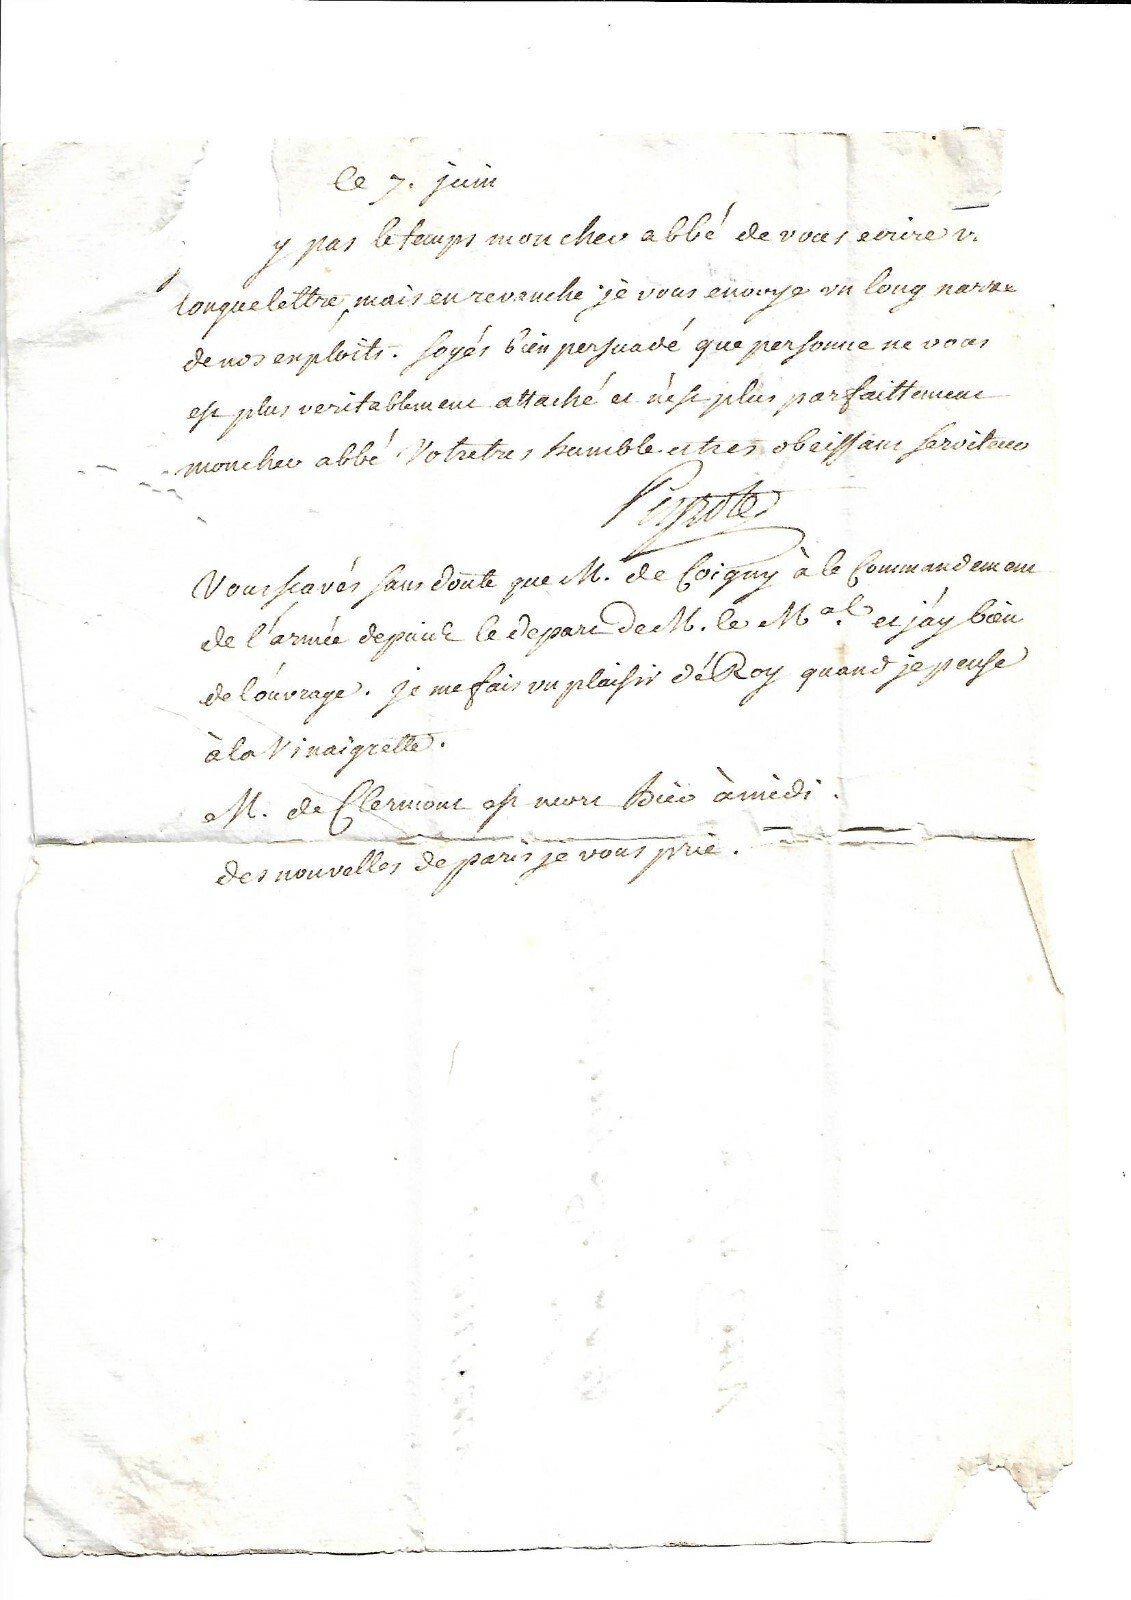 ce 7. juin
y pas le temps mon cher abbé de vous ecrire v
longue lettre, mais en revanche je vous envoye un long narra
de nos exploits. soyés bien persuadé que personne ne vous
est plus veritablement attaché et n'est plus parfaittement
mon cher abbé Votre tres humble et tres obeissant serviteur
Peyrote
Vous scavés sans doute que M. de Coigny à le Commandement
de l'armée depuis le depart de M. le Mal. et j'ay bien
de l'ouvrage. je me fais un plaisir de Roy quand je pense
à la Vinaigrette.
M. de Clermont est mort hier à midi.
des nouvelles de paris je vous prie.